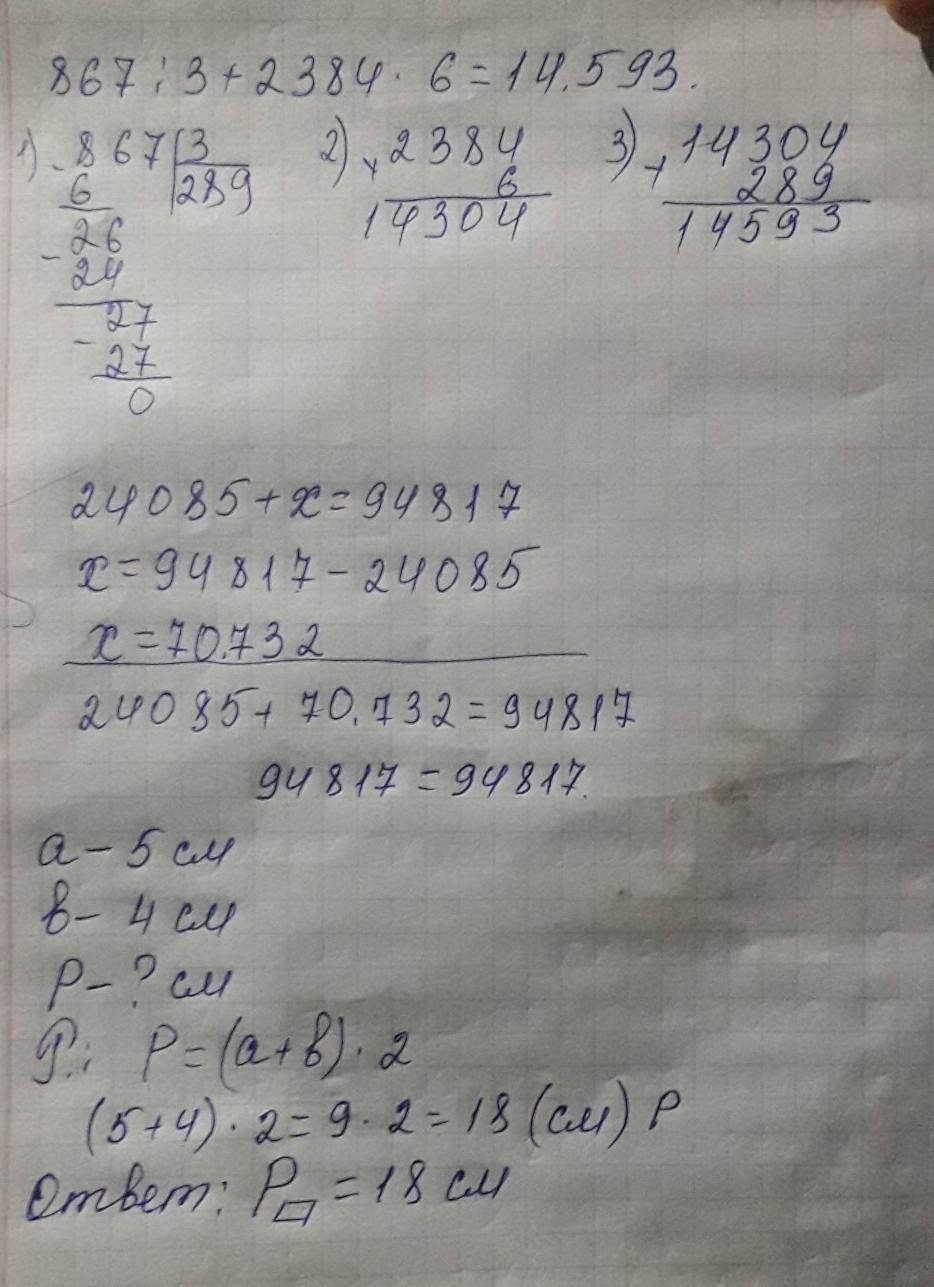 867 : 3 + 2384 · 6 = 14.593.
1) - 867 | 3   2) × 2384   3) + 14304
6   289   6   289
- 26   14304   14593
24
- 27
27
0
24085 + x = 94817
x = 94817 - 24085
x = 70.732
24085 + 70.732 = 94817
94817 = 94817.
a - 5 см
в - 4 см
P - ? см
P.: P = (a + в) · 2
(5 + 4) · 2 = 9 · 2 = 18 (см) P
Ответ: P▱ = 18 см